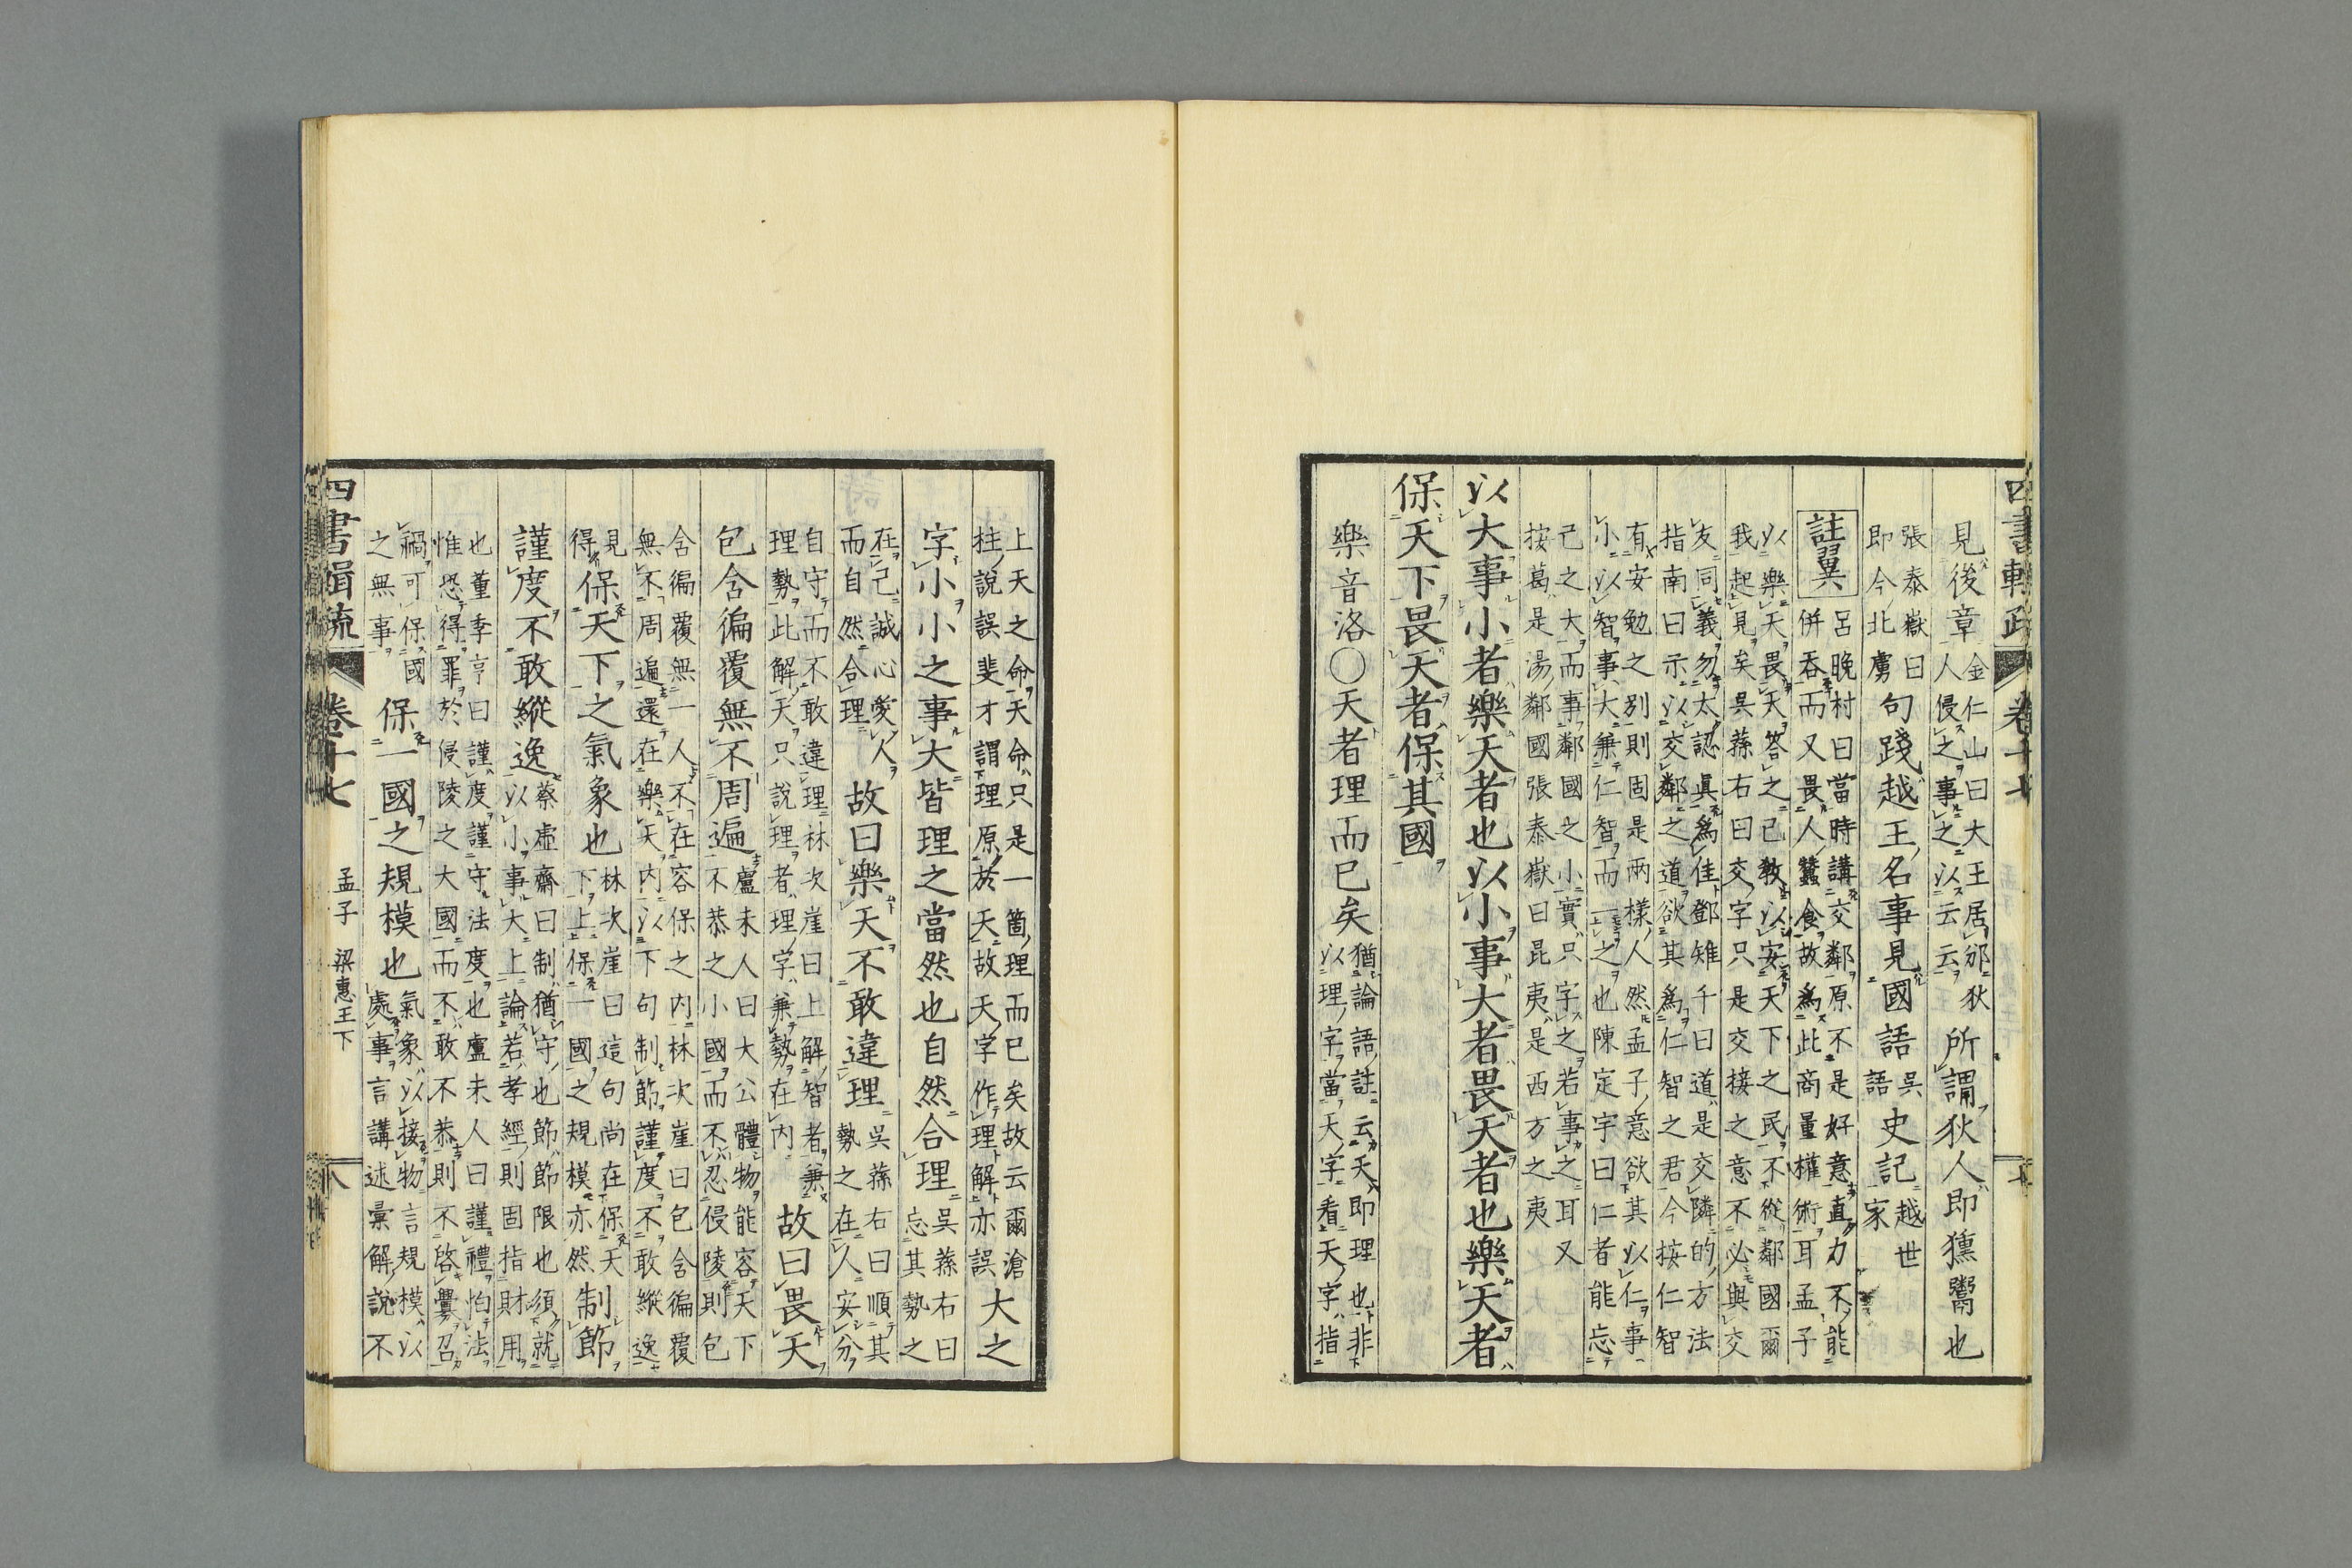 四書輯疏 卷十七
見後章 金仁山曰大王居邠狄人侵之事之以云云 所謂狄人即獯鬻也
張泰嶽曰即今北虜 句踐越王名事見國語 吳語 史記 越世家
註翼 呂晚村曰當時講交鄰原不是好意直力不能併吞而又畏人蠶食故爲此商量權術耳孟子
以樂天畏天答之已敎以安天下之民不從鄰國爾我起見矣吳蓀右曰交字只是交接之意不必與交
友同義勿太認眞爲佳鄧雉千曰道是交隣的方法指南曰示以交鄰之道欲其爲仁智之君今按仁智
有安勉之別則固是兩樣人然孟子意欲其以仁事小以智事大兼仁智而一之也陳定宇曰仁者能忘
己之大而事鄰國之小實只字之若事之耳又按葛是湯鄰國張泰嶽曰昆夷是西方之夷
以大事小者樂天者也以小事大者畏天者也樂天者
保天下畏天者保其國
樂音洛〇天者理而已矣 猶論語註云天即理也非以理字當天字看天字指
上天之命天命只是一箇理而已矣故云爾滄柱說誤斐才謂理原於天故天字作理解亦誤 大之
字小小之事大皆理之當然也自然合理 吳蓀右曰忘其勢之
在己誠心愛人而自然合理 故曰樂天不敢違理 吳蓀右曰順其勢之在人安分
自守而不敢違理林次崖曰上解智者兼理勢此解天只說理者理字兼勢在內 故曰畏天
包含徧覆無不周遍 盧未人曰大公體物能容天下不恭之小國而不忍侵陵則包
含徧覆無一人不在容保之內林次崖曰包含徧覆無不周遍還在樂天內以下句制節謹度不敢縱逸
見得 保天下之氣象也 林次崖曰這句尚在保天下上保一國之規模亦然 制節
謹度不敢縱逸 蔡虛齋曰制猶守也節節限也須就以小事大上論若孝經則固指財用
也董季亨曰謹度謹守法度也盧未人曰謹禮怕法惟恐得罪於侵陵之大國而不敢不恭則不啓釁召
禍可保國之無事 保一國之規模也 氣象以接物言規模以處事言講述彙解說不
四書輯疏 卷十七 孟子 梁惠王下 八